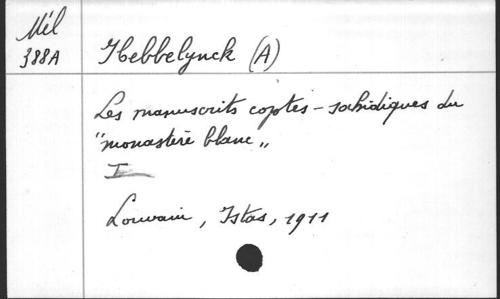 Mél
388A
Hebbelynck (A)
Les manuscrits coptes-sahidiques du
"monastère blanc„
I
Louvain, Istas, 1911